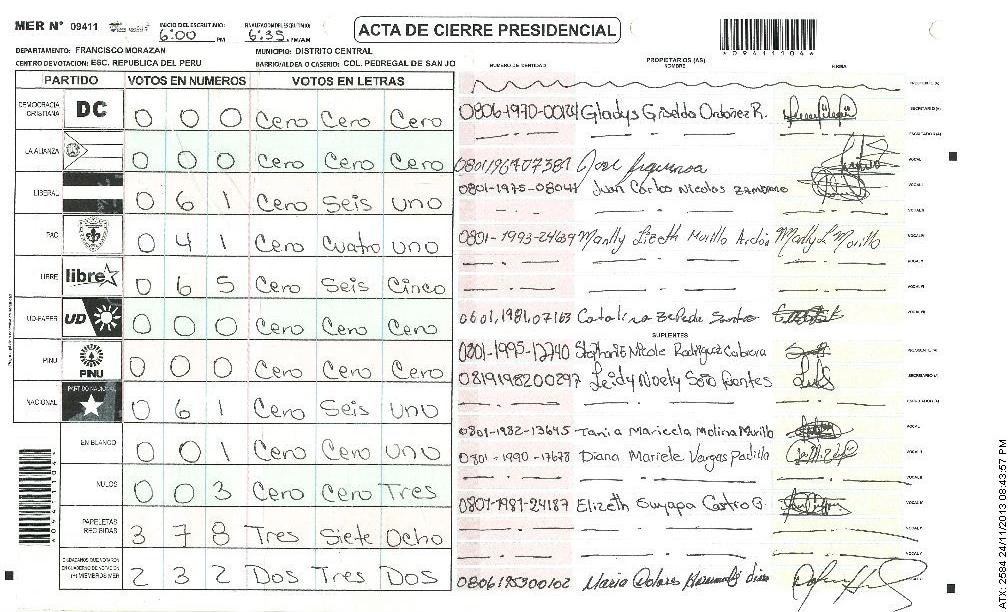 MER N° 09411 INICIO DEL ESCRUTINIO: 6:00 PM FINALIZACION DEL ESCRUTINIO: 6:35 PM/AM ACTA DE CIERRE PRESIDENCIAL
DEPARTAMENTO: FRANCISCO MORAZAN MUNICIPIO: DISTRITO CENTRAL
CENTRO DE VOTACION: ESC. REPUBLICA DEL PERU BARRIO/ALDEA O CASERIO: COL. PEDREGAL DE SAN JO
PARTIDO VOTOS EN NUMEROS VOTOS EN LETRAS
DEMOCRACIA CRISTIANA DC 0 0 0 Cero Cero Cero
LA ALIANZA 0 0 0 Cero Cero Cero
LIBERAL 0 6 1 Cero Seis uno
PAC 0 4 1 Cero Cuatro uno
LIBRE libre 0 6 5 Cero Seis Cinco
UD-FAPER UD 0 0 0 Cero Cero Cero
PINU PINU 0 0 0 Cero Cero Cero
NACIONAL PARTIDO NACIONAL 0 6 1 Cero Seis uno
EN BLANCO 0 0 1 Cero Cero uno
NULOS 0 0 3 Cero Cero Tres
PAPELETAS RECIBIDAS 3 7 8 Tres Siete Ocho
2 3 2 Dos Tres Dos
NUMERO DE IDENTIDAD PROPIETARIOS (AS) NOMBRE FIRMA
Gladys Griselda Ordoñez R.
José Figueroa
0801-1975-08041 Juan Carlos Nicolas Zambrano
0801-1993-24639 Marlly Lizeth Murillo Ardón Marlly L Murillo
0601,1981,07163 Catalina Zepeda Santos
SUPLENTES
0801-1995-12740 Stephanie Nicole Rodriguez Cabrera
0819198200297 Leidy Noely Soto Fuentes
0801-1982-13645 Tania Maricela Molina Murillo
0801-1990-17678 Diana Mariele Vargas Padilla
0801-1981-24187 Elizeth Suyapa Castro G
0806195300102 Maria Dolores
ATX: 2584 24/11/2013 08:43:57 PM